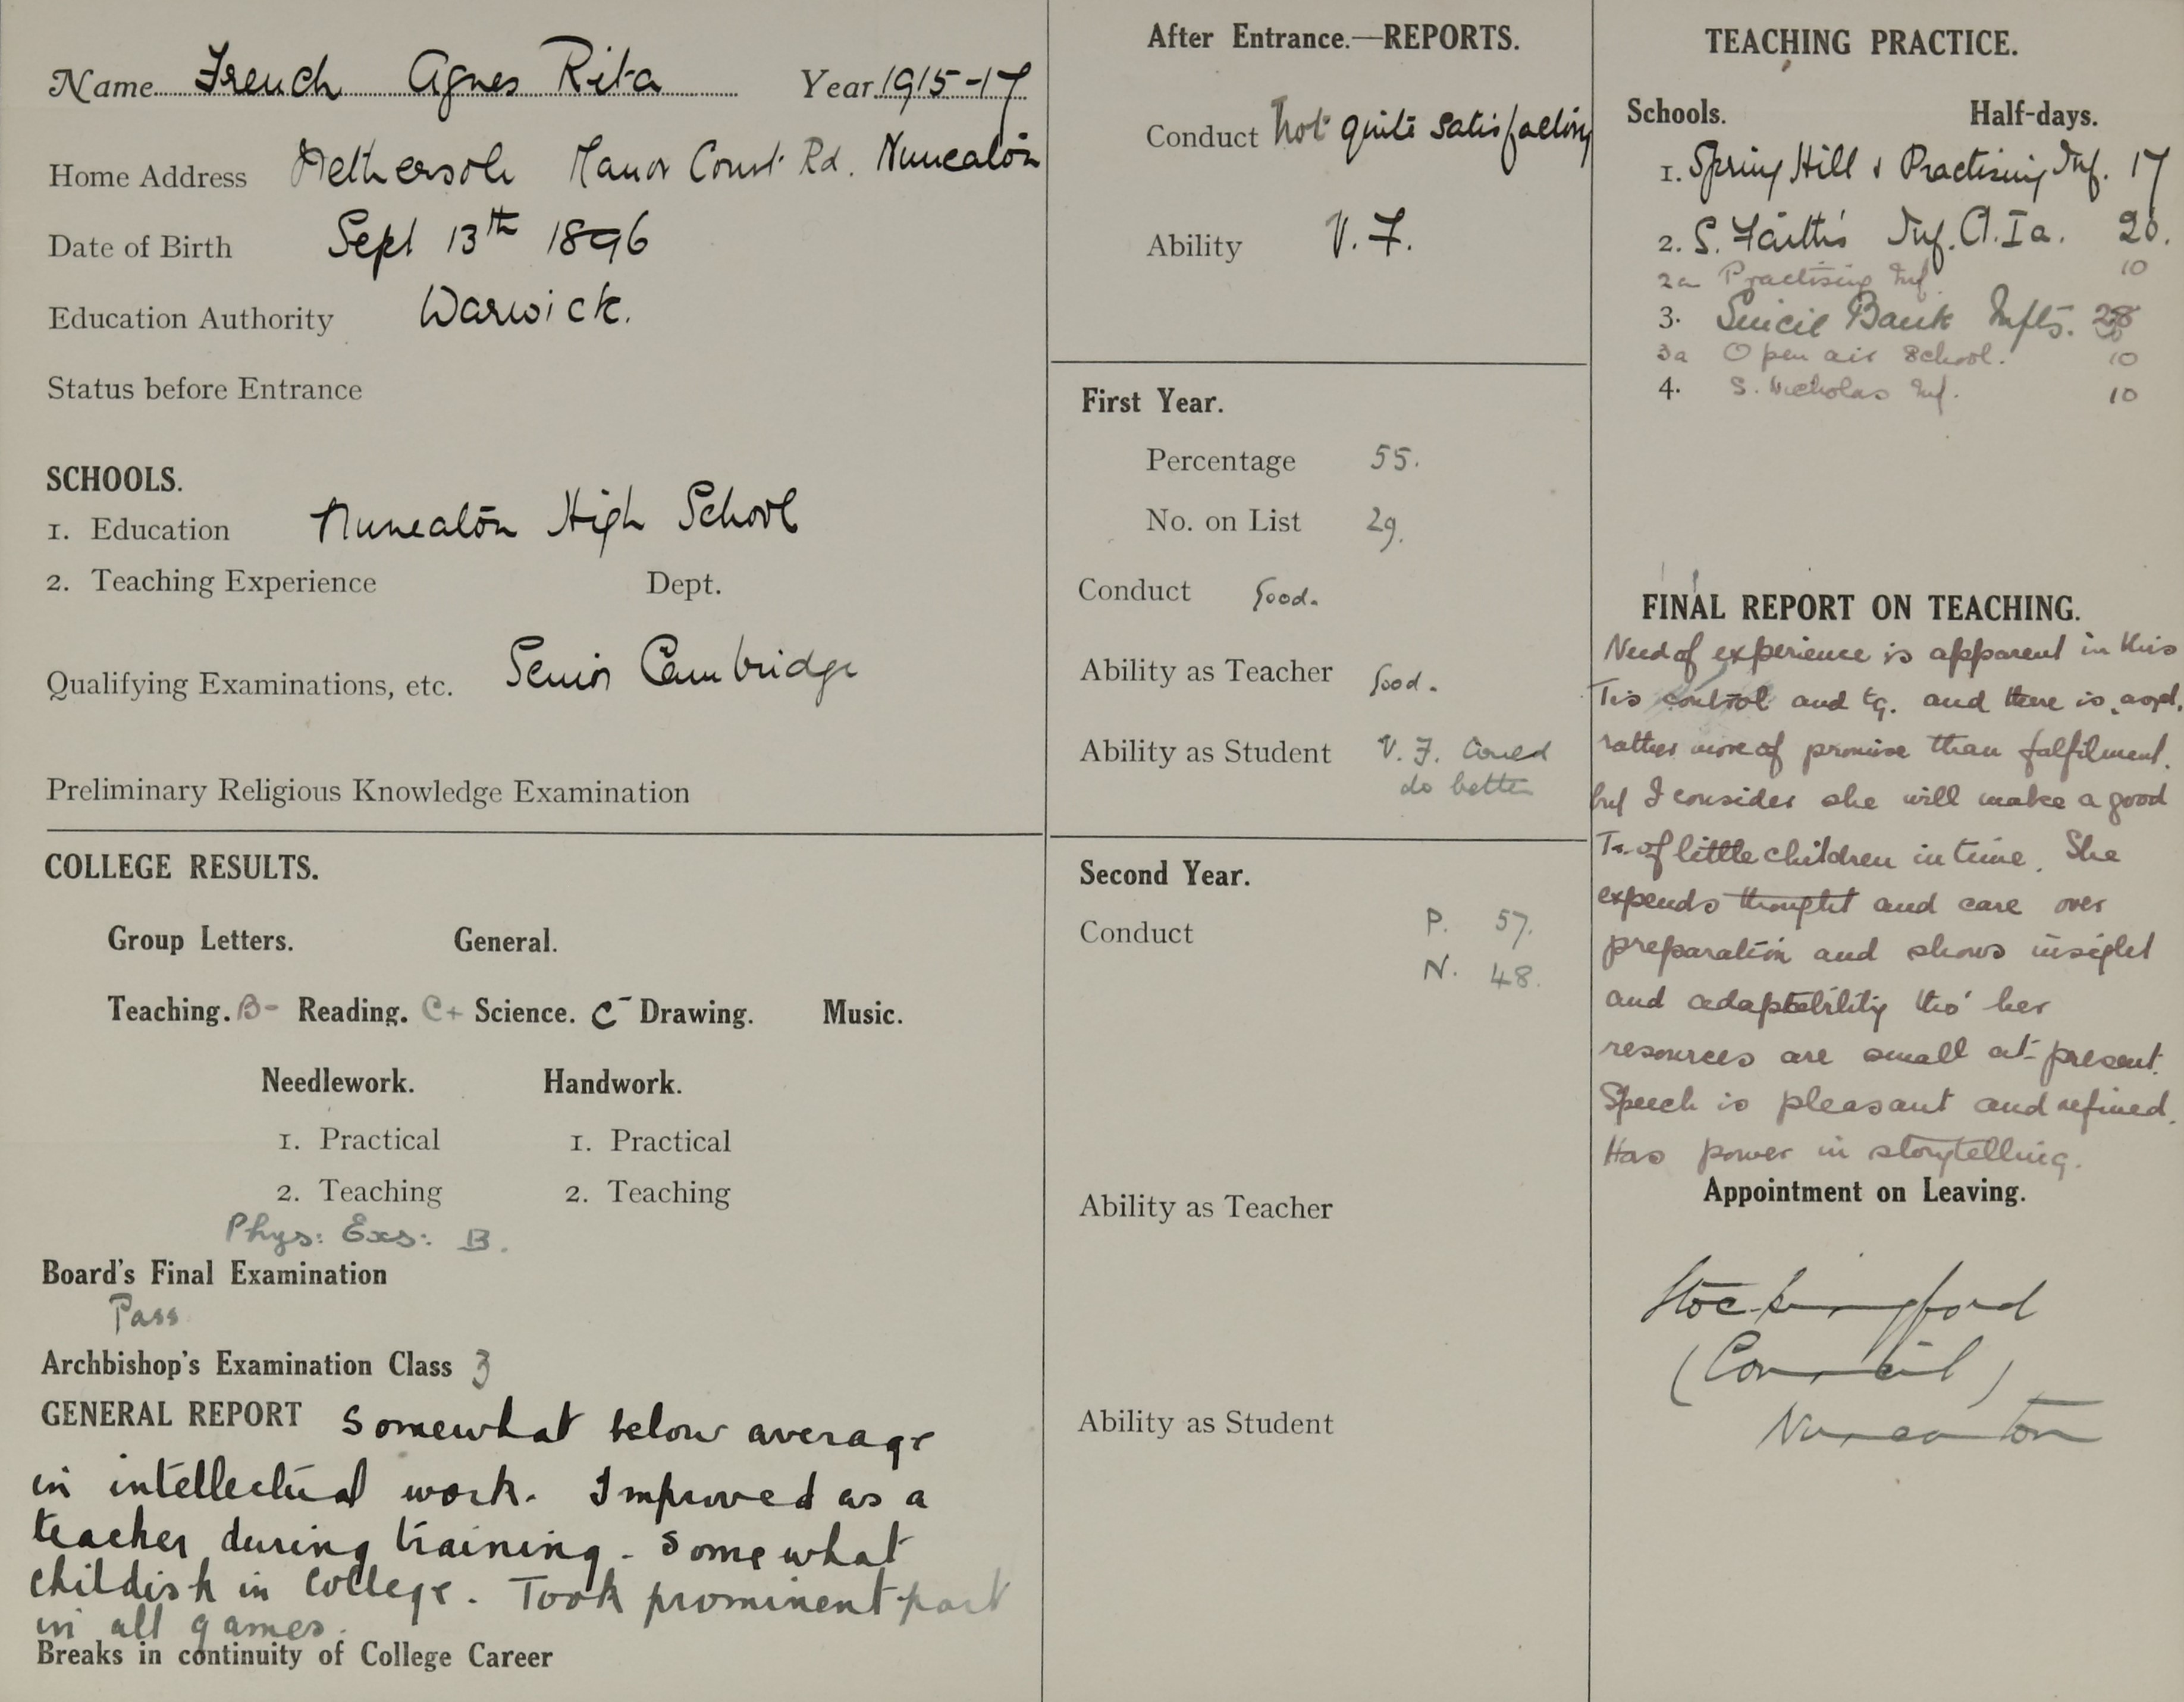 Name French Agnes Rita Year 1915-17
Home Address Nethersole Manor Court Rd. Nuneaton
Date of Birth Sept 13th 1896
Education Authority Warwick.
Status before Entrance
SCHOOLS.
1. Education Nuneaton High School
2. Teaching Experience Dept.
Qualifying Examinations, etc. Senior Cambridge
Preliminary Religious Knowledge Examination
COLLEGE RESULTS.
Group Letters. General.
Teaching. B- Reading. C+ Science. C- Drawing. Music.
Needlework. Handwork.
1. Practical 1. Practical
2. Teaching 2. Teaching
Phys: Exs: B.
Board's Final Examination
Pass
Archbishop's Examination Class 3
GENERAL REPORT Somewhat below average
in intellectual work. Improved as a
teacher during training. Somewhat
childish in College. Took prominent part
in all games.
Breaks in continuity of College Career
After Entrance.—REPORTS.
Conduct Not quite satisfactory
Ability V. F.
First Year.
Percentage 55.
No. on List 29.
Conduct Good.
Ability as Teacher Good.
Ability as Student V. F. Could
do better
Second Year.
Conduct P. 57.
N. 48.
Ability as Teacher
Ability as Student
TEACHING PRACTICE.
Schools. Half-days.
1. Spring Hill & Practising Inf. 17
2. S. Faith's Inf. Cl. Ia. 20.
2a Practising Inf. 10
3. Sincil Bank Infts. 28
3a Open air School. 10
4. S. Nicholas Inf. 10
FINAL REPORT ON TEACHING.
Need of experience is apparent in this
Tr's control and tg. and there is
rather more of promise than fulfilment.
but I consider she will make a good
Tr. of little children in time. She
expends thought and care over
preparation and shows insight
and adaptability tho' her
resources are small at present.
Speech is pleasant and refined.
Has power in storytelling.
Appointment on Leaving.
Stockingford
(Council)
Nuneaton